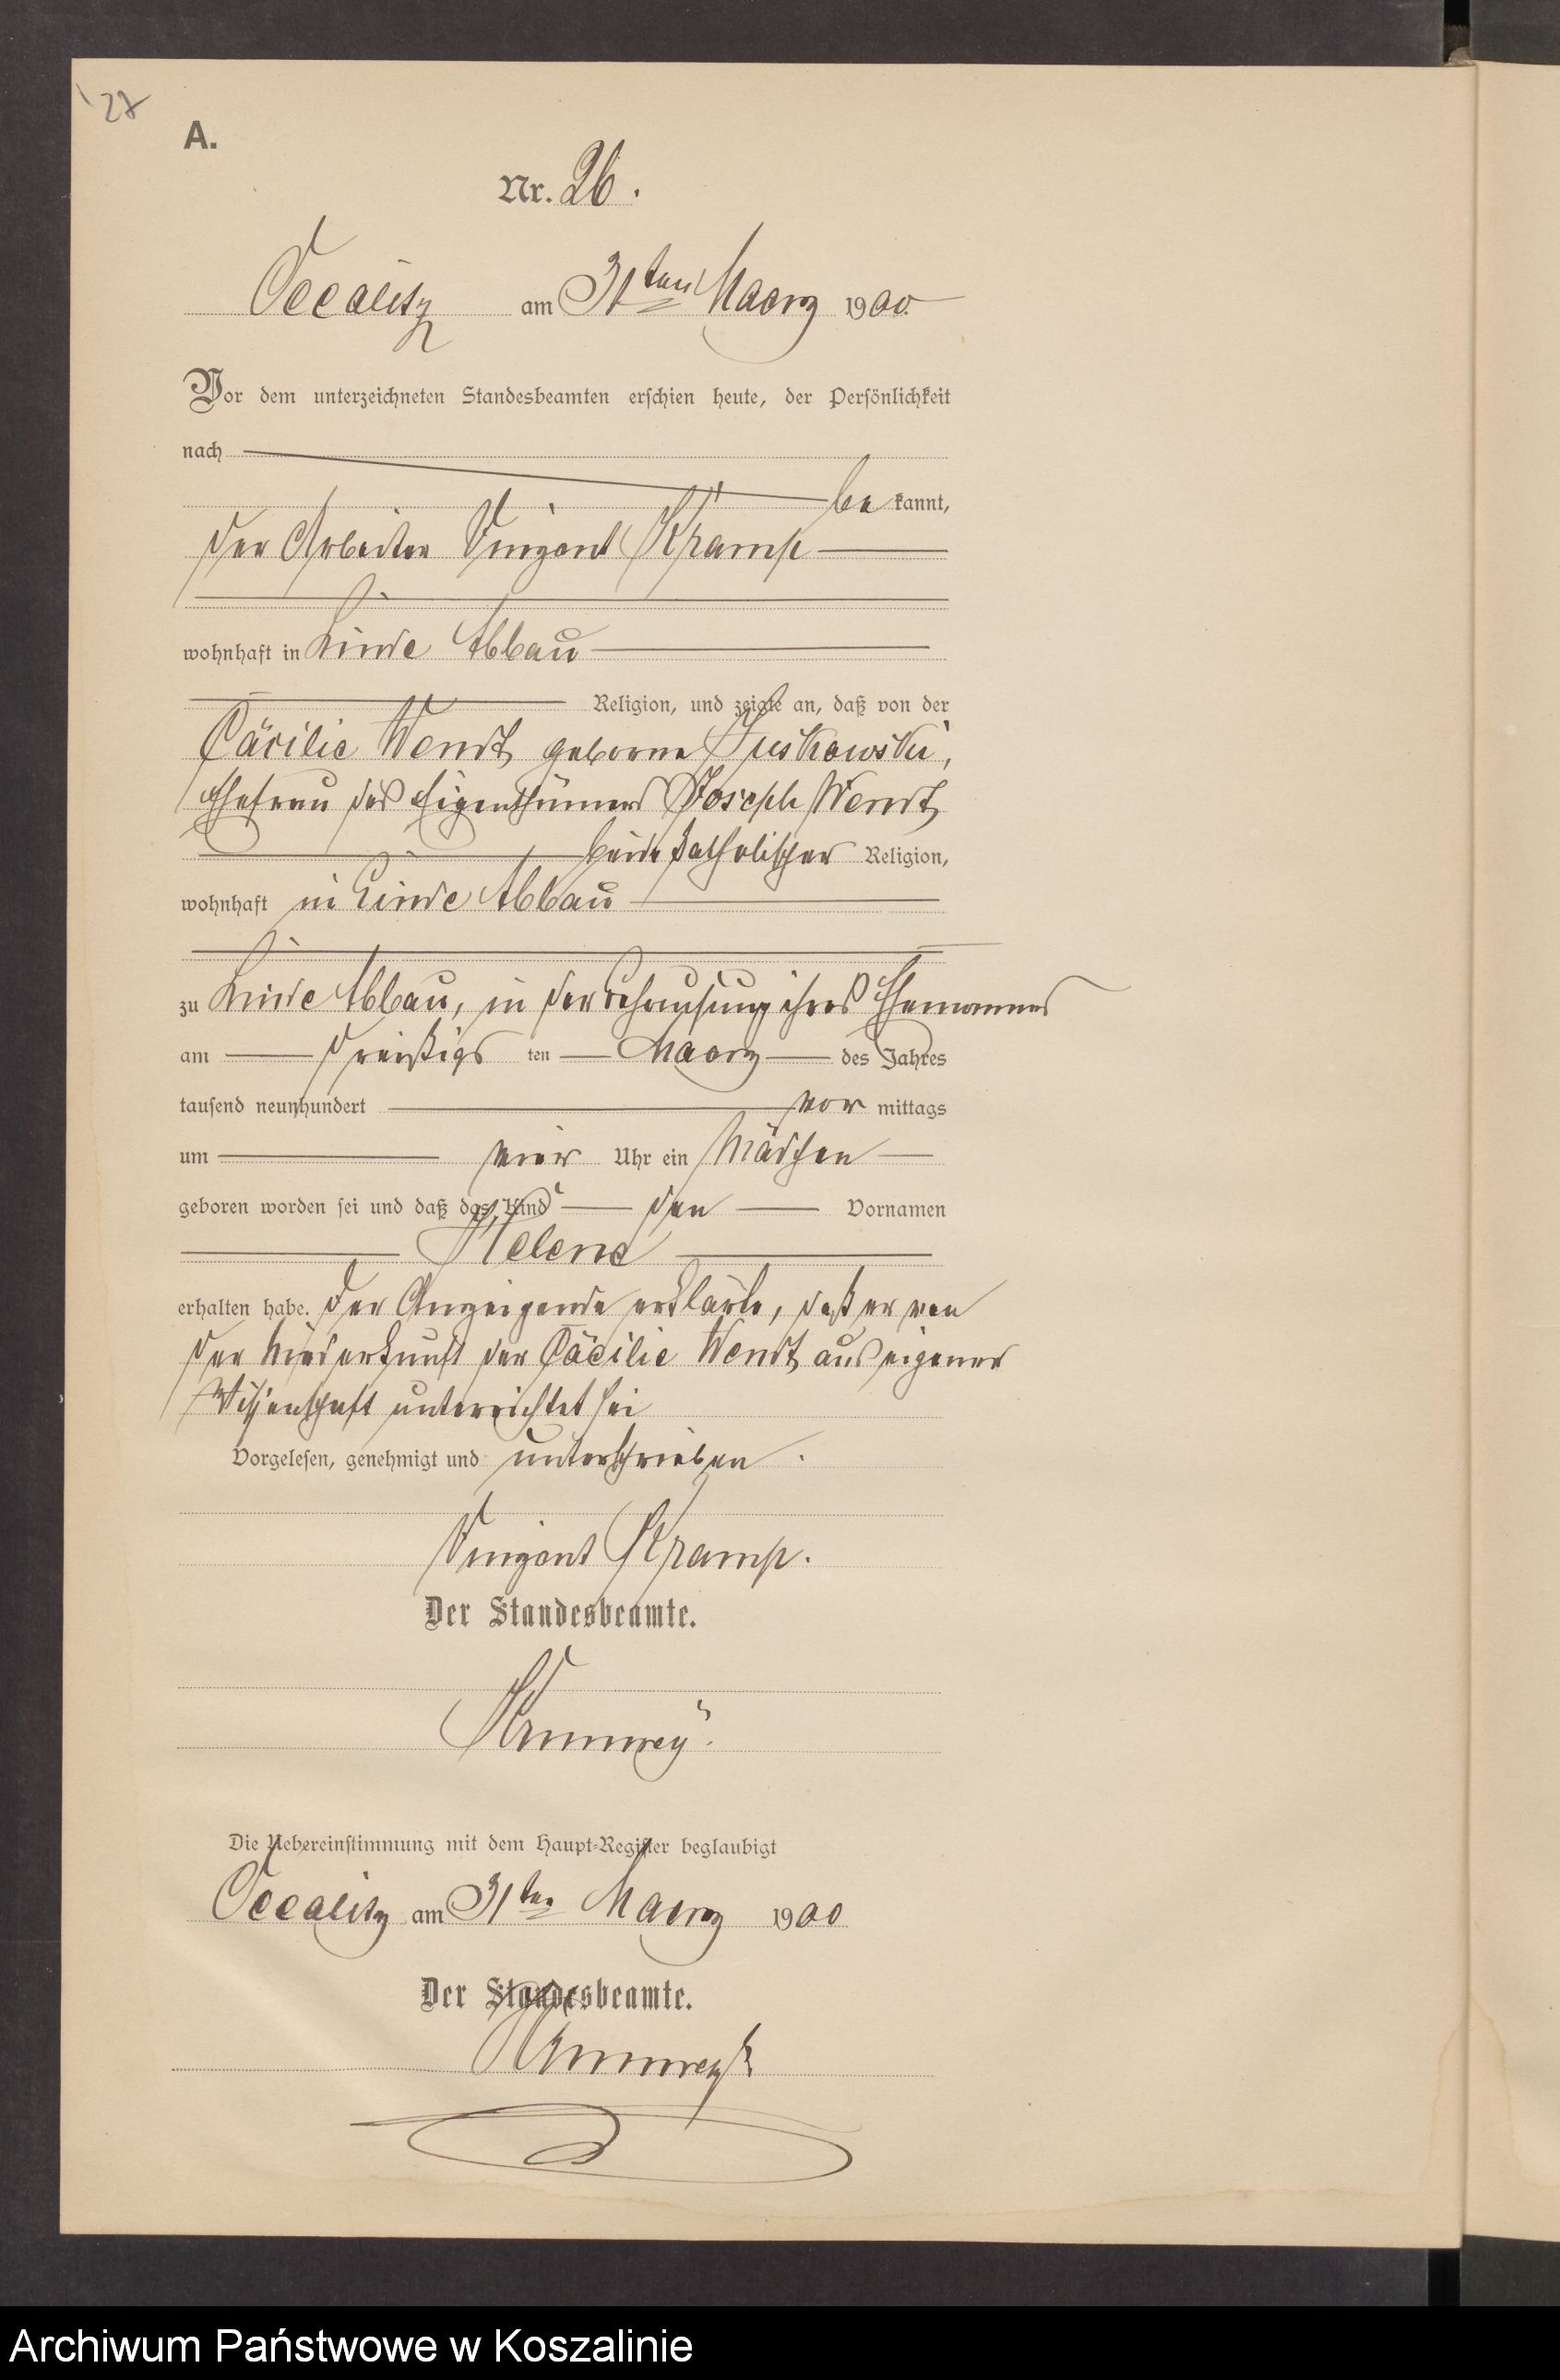 27
A.
Nr. 26.
Occalitz am 31ten Maerz 1900.
Vor dem unterzeichneten Standesbeamten erschien heute, der Persönlichkeit
nach
be kannt,
der Arbeiter Vinzent Kramp
wohnhaft in Linde Abbau
Religion, und zeigte an, daß von der
Cäcilie Wendt geborne
Ehefrau des Eigenthümers Joseph Wendt
beide katholischer Religion,
wohnhaft in Linde Abbau
zu Linde Abbau, in der Behausung ihres Ehemannes
am dreißigs ten Maerz des Jahres
tausend neunhundert vor mittags
um vier Uhr ein Mädchen
geboren worden sei und daß das Kind den Vornamen
Helene
erhalten habe. Der Anzeigende erklärte, daß er von
der Niederkunft der Cäcilie Wendt aus eigener
Wissenschaft unterrichtet sei
Vorgelesen, genehmigt und unterschrieben.
Vinzent Kramp.
Der Standesbeamte.
Die Uebereinstimmung mit dem Haupt-Register beglaubigt
Occalitz am 31ten Maerz 1900
Der Standesbeamte.
Archiwum Państwowe w Koszalinie